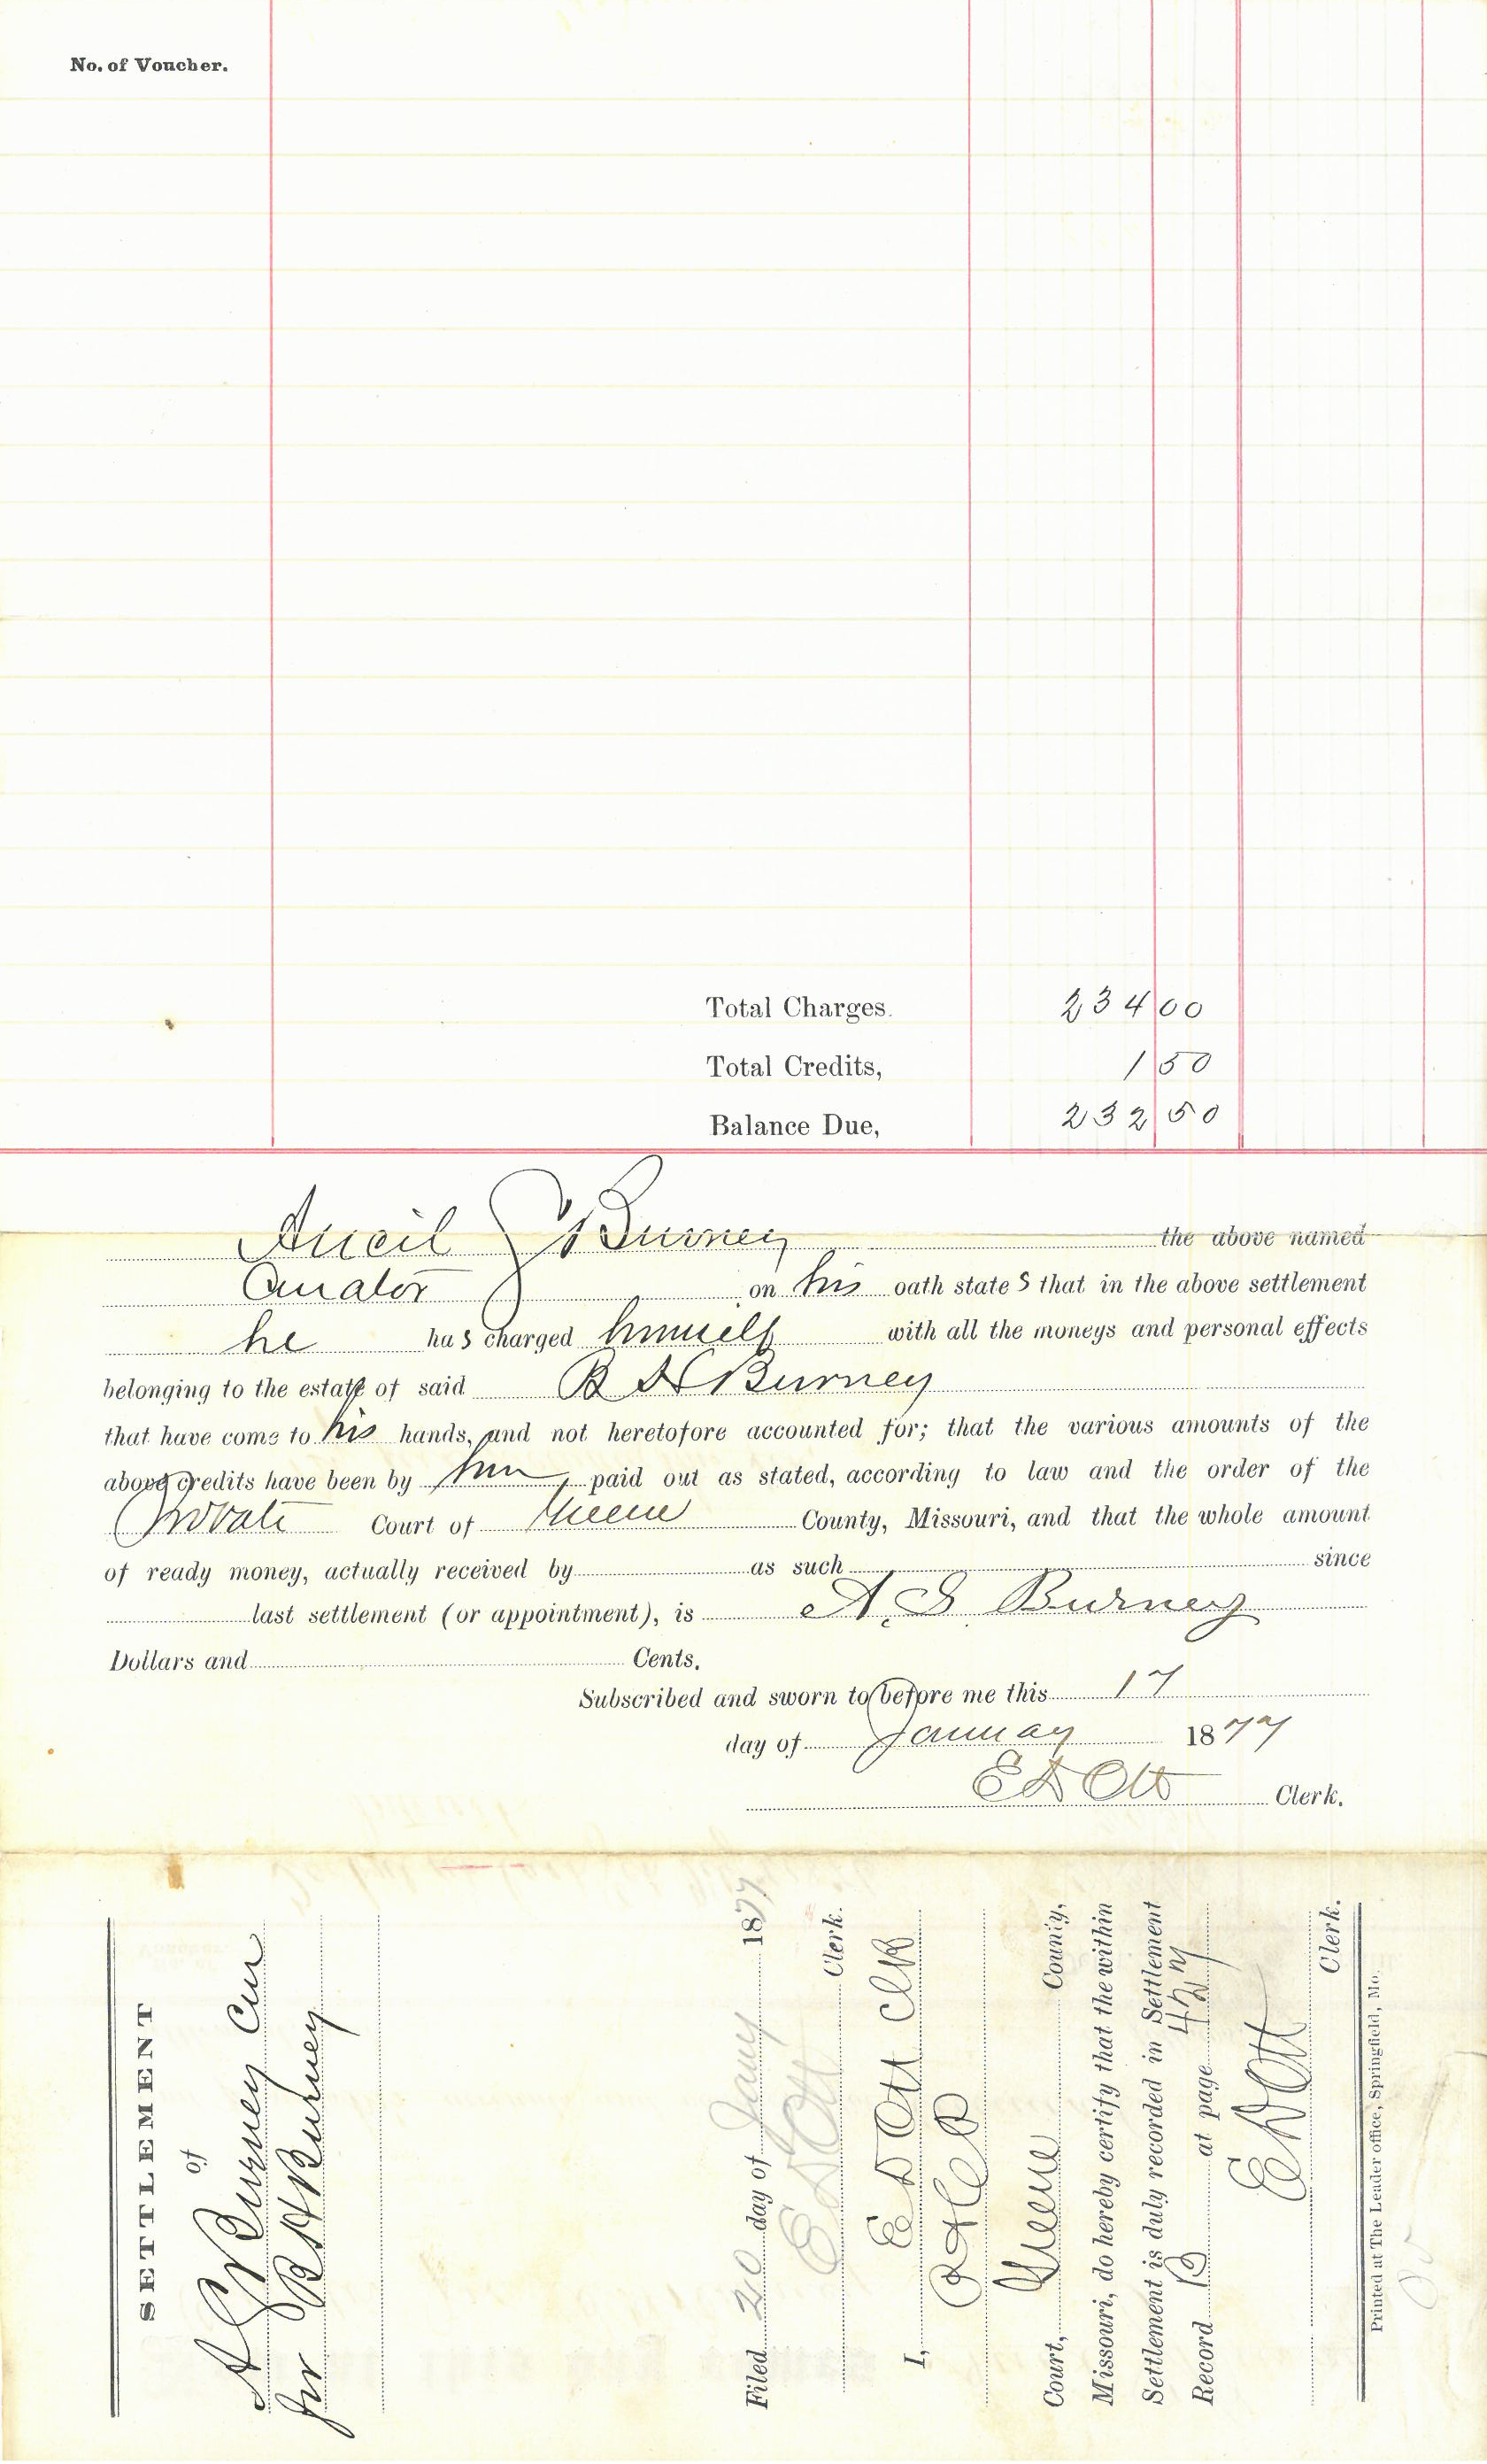 No. of Voucher.
Total Charges. 234 00
Total Credits, 1 50
Balance Due, 232 50
Ancil G Burney the above named
Curator on his oath state s that in the above settlement
he has charged himself with all the moneys and personal effects
belonging to the estate of said B H Burney
that have come to his hands, and not heretofore accounted for; that the various amounts of the
above credits have been by him paid out as stated, according to law and the order of the
Probate Court of Greene County, Missouri, and that the whole amount
of ready money, actually received by as such since
last settlement (or appointment), is A. G. Burney
Dollars and Cents.
Subscribed and sworn to before me this 17
day of January 1877
E D Ott Clerk.
SETTLEMENT
of
A G Burney Cur
for B H Burney
Filed 20 day of Jany 1877
E D Ott Clerk.
I, E D Ott Clk
Court, Greene County,
Missouri, do hereby certify that the within
Settlement is duly recorded in Settlement
Record B at page 427
E D Ott
Clerk.
Printed at The Leader office, Springfield, Mo.